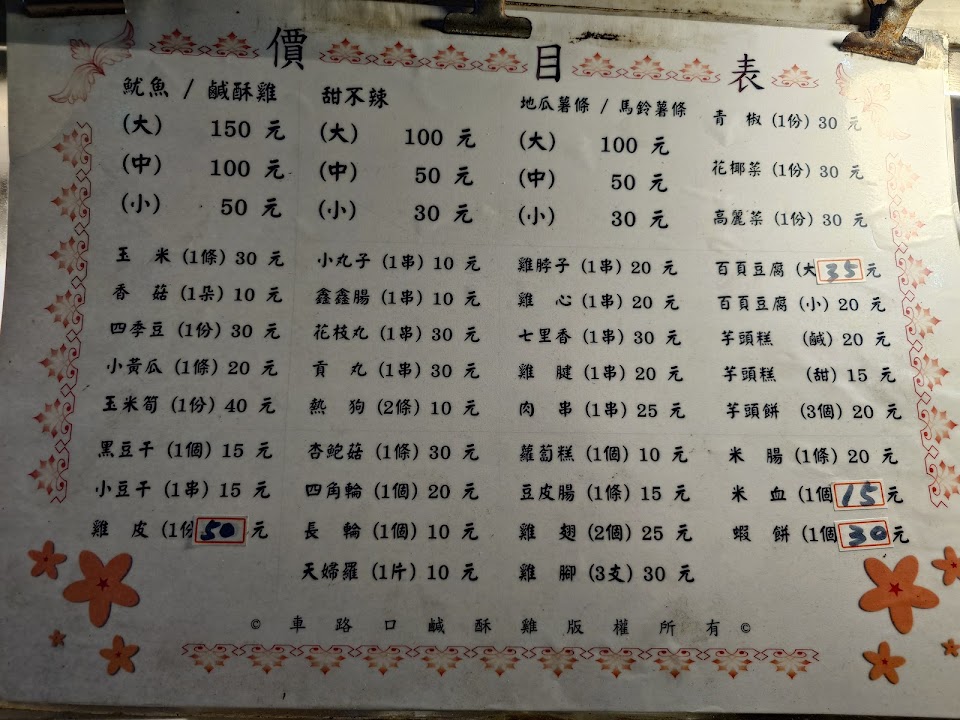 價目表
魷魚 / 鹹酥雞
(大) 150 元
(中) 100 元
(小) 50 元
甜不辣
(大) 100 元
(中) 50 元
(小) 30 元
地瓜薯條 / 馬鈴薯條
(大) 100 元
(中) 50 元
(小) 30 元
青 椒 (1份) 30 元
花椰菜 (1份) 30 元
高麗菜 (1份) 30 元
玉 米 (1條) 30 元
香 菇 (1朵) 10 元
四季豆 (1份) 30 元
小黃瓜 (1條) 20 元
玉米筍 (1份) 40 元
小丸子 (1串) 10 元
鑫鑫腸 (1串) 10 元
花枝丸 (1串) 30 元
貢 丸 (1串) 30 元
熱 狗 (2條) 10 元
雞脖子 (1串) 20 元
雞 心 (1串) 20 元
七里香 (1串) 30 元
雞 腱 (1串) 20 元
肉 串 (1串) 25 元
百頁豆腐 (大 35 元
百頁豆腐 (小) 20 元
芋頭糕 (鹹) 20 元
芋頭糕 (甜) 15 元
芋頭餅 (3個) 20 元
黑豆干 (1個) 15 元
小豆干 (1串) 15 元
雞 皮 (1份 50 元
杏鮑菇 (1條) 30 元
四角輪 (1個) 20 元
長 輪 (1個) 10 元
天婦羅 (1片) 10 元
蘿蔔糕 (1個) 10 元
豆皮腸 (1條) 15 元
雞 翅 (2個) 25 元
雞 腳 (3支) 30 元
米 腸 (1條) 20 元
米 血 (1個 15 元
蝦 餅 (1個 30 元
© 車路口鹹酥雞版權所有 ©